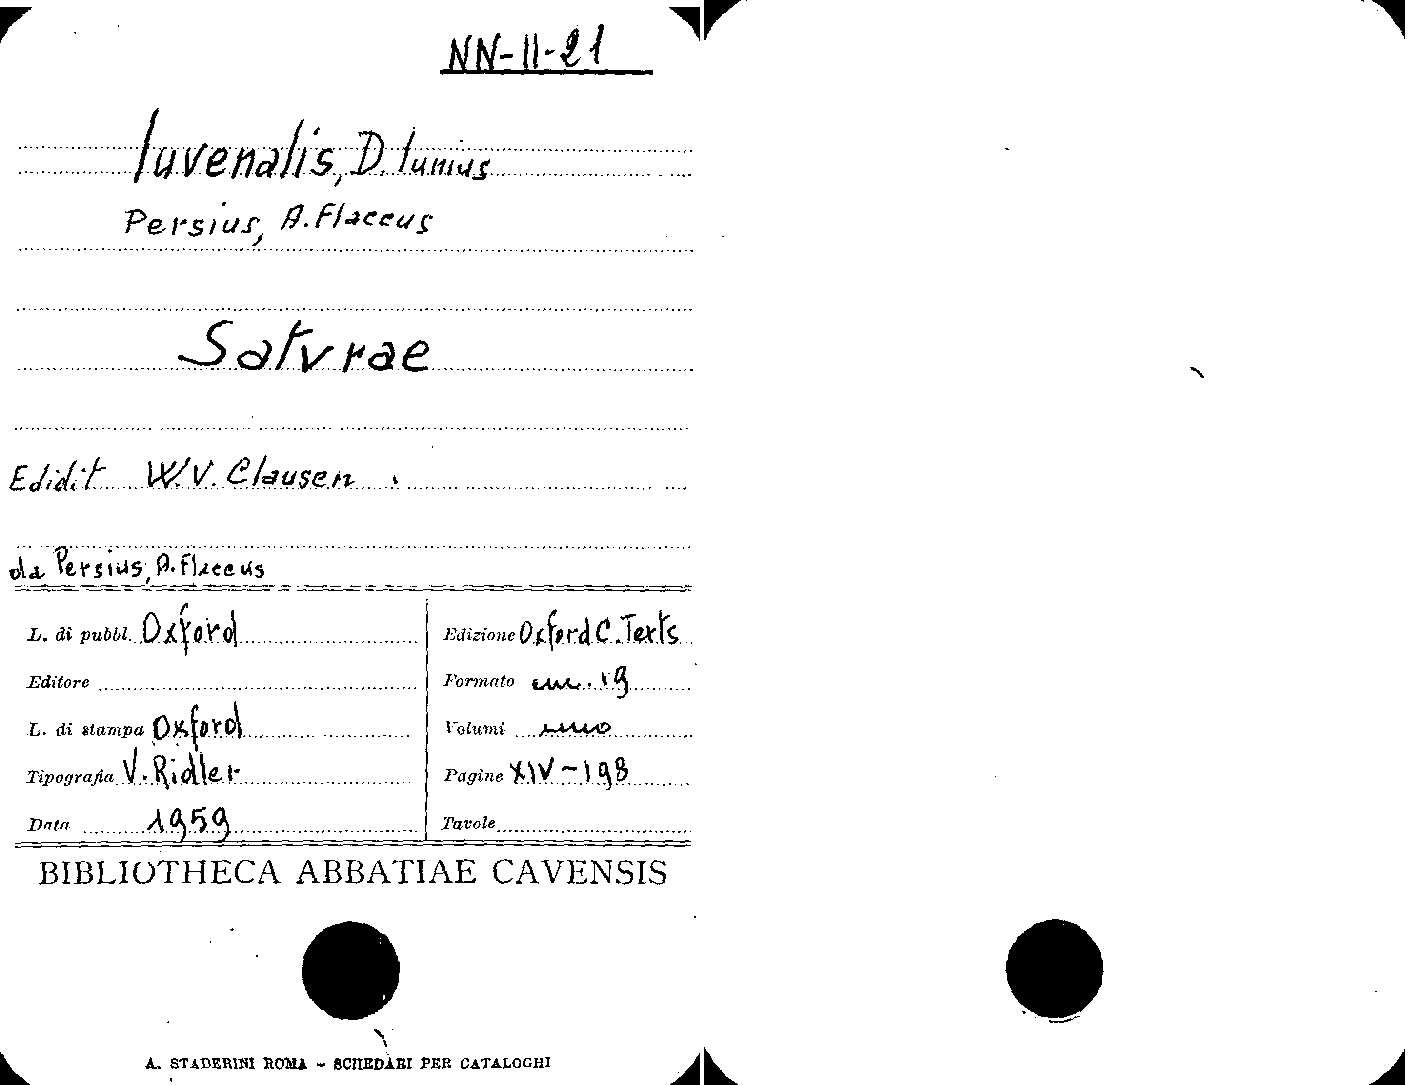 NN-II-21
Iuvenalis, D. Iunius
Persius, A. Flaccus
Saturae
Edidit W.V. Clausen.
da Persius, A. Flaccus
L. di pubbl. Oxford
Editore
L. di stampa Oxford
Tipografia V. Ridler
Data 1959
Edizione Oxford C. Texts
Formato cm. 19
Volumi uno
Pagine XIV-198
Tavole
BIBLIOTHECA ABBATIAE CAVENSIS
A. STADERINI ROMA - SCHEDARI PER CATALOGHI